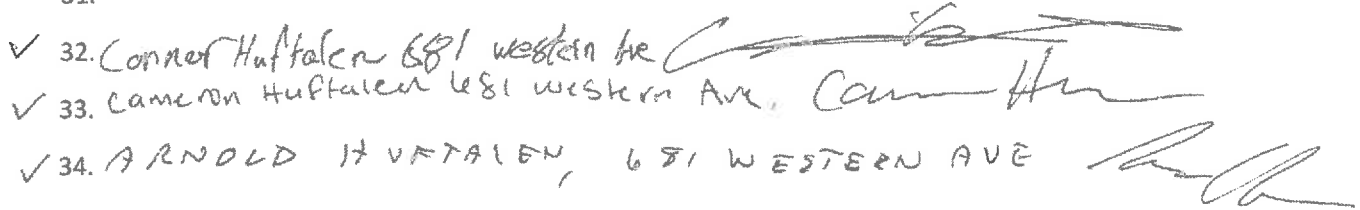 ✓ 32. Conner Huftalen 681 western Ave
✓ 33. Cameron Huftalen 681 western Ave.
✓ 34. ARNOLD HUFTALEN, 681 WESTERN AVE